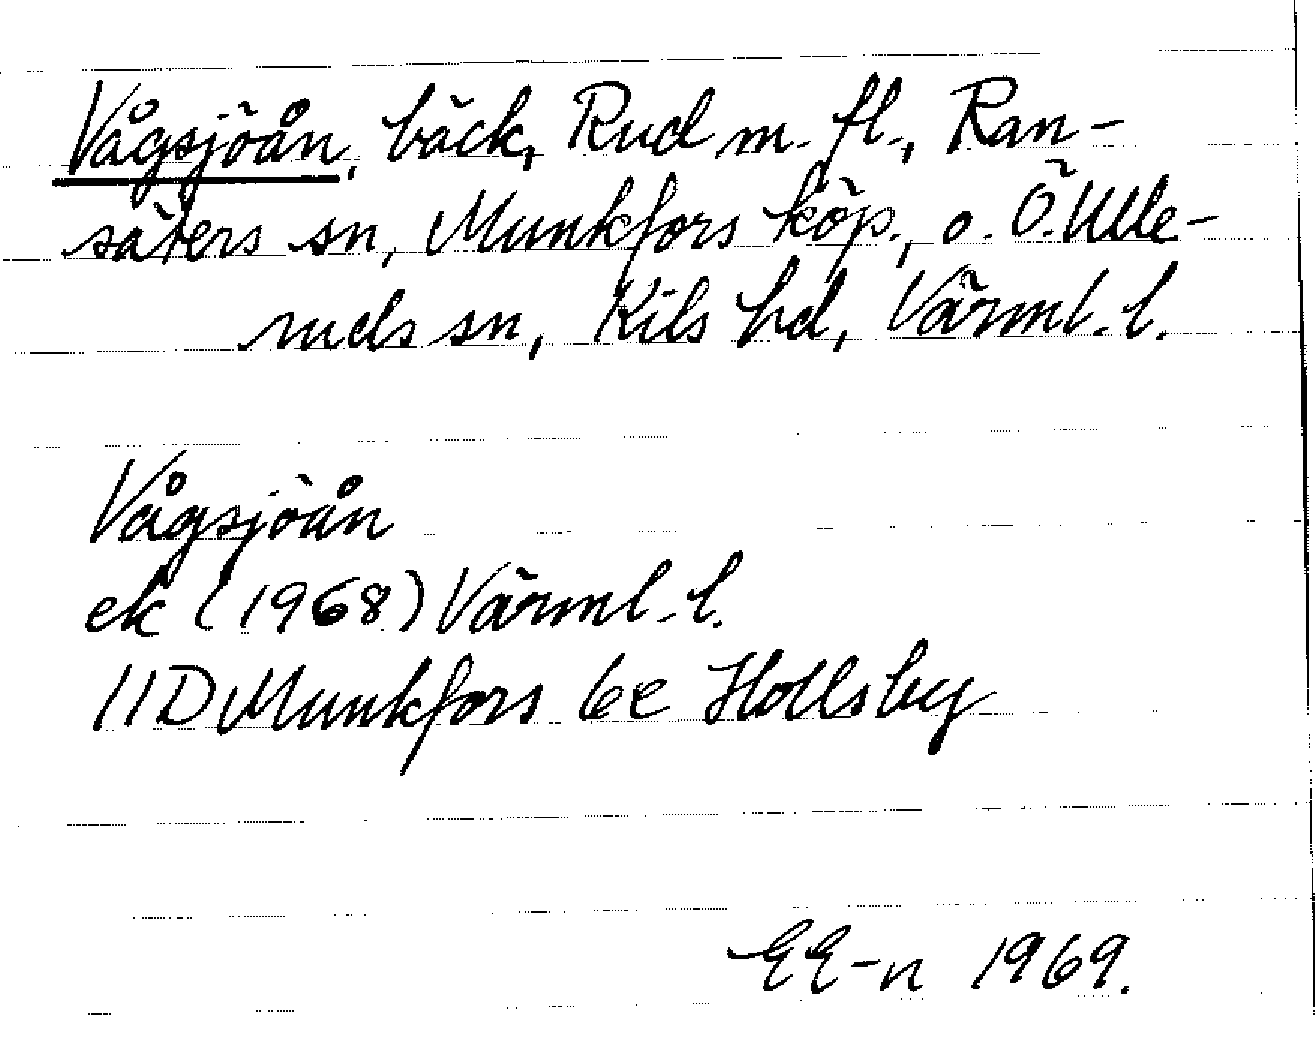 Vågsjöån, bäck, Rud m. fl., Ran-
säters sn, Munkfors köp., o. Ö. Ulle-
ruds sn, Kils hd, Värml. l.
Vågsjöån
ek (1968) Värml. l.
11D Munkfors 6e Hollsby
EE-n 1969.